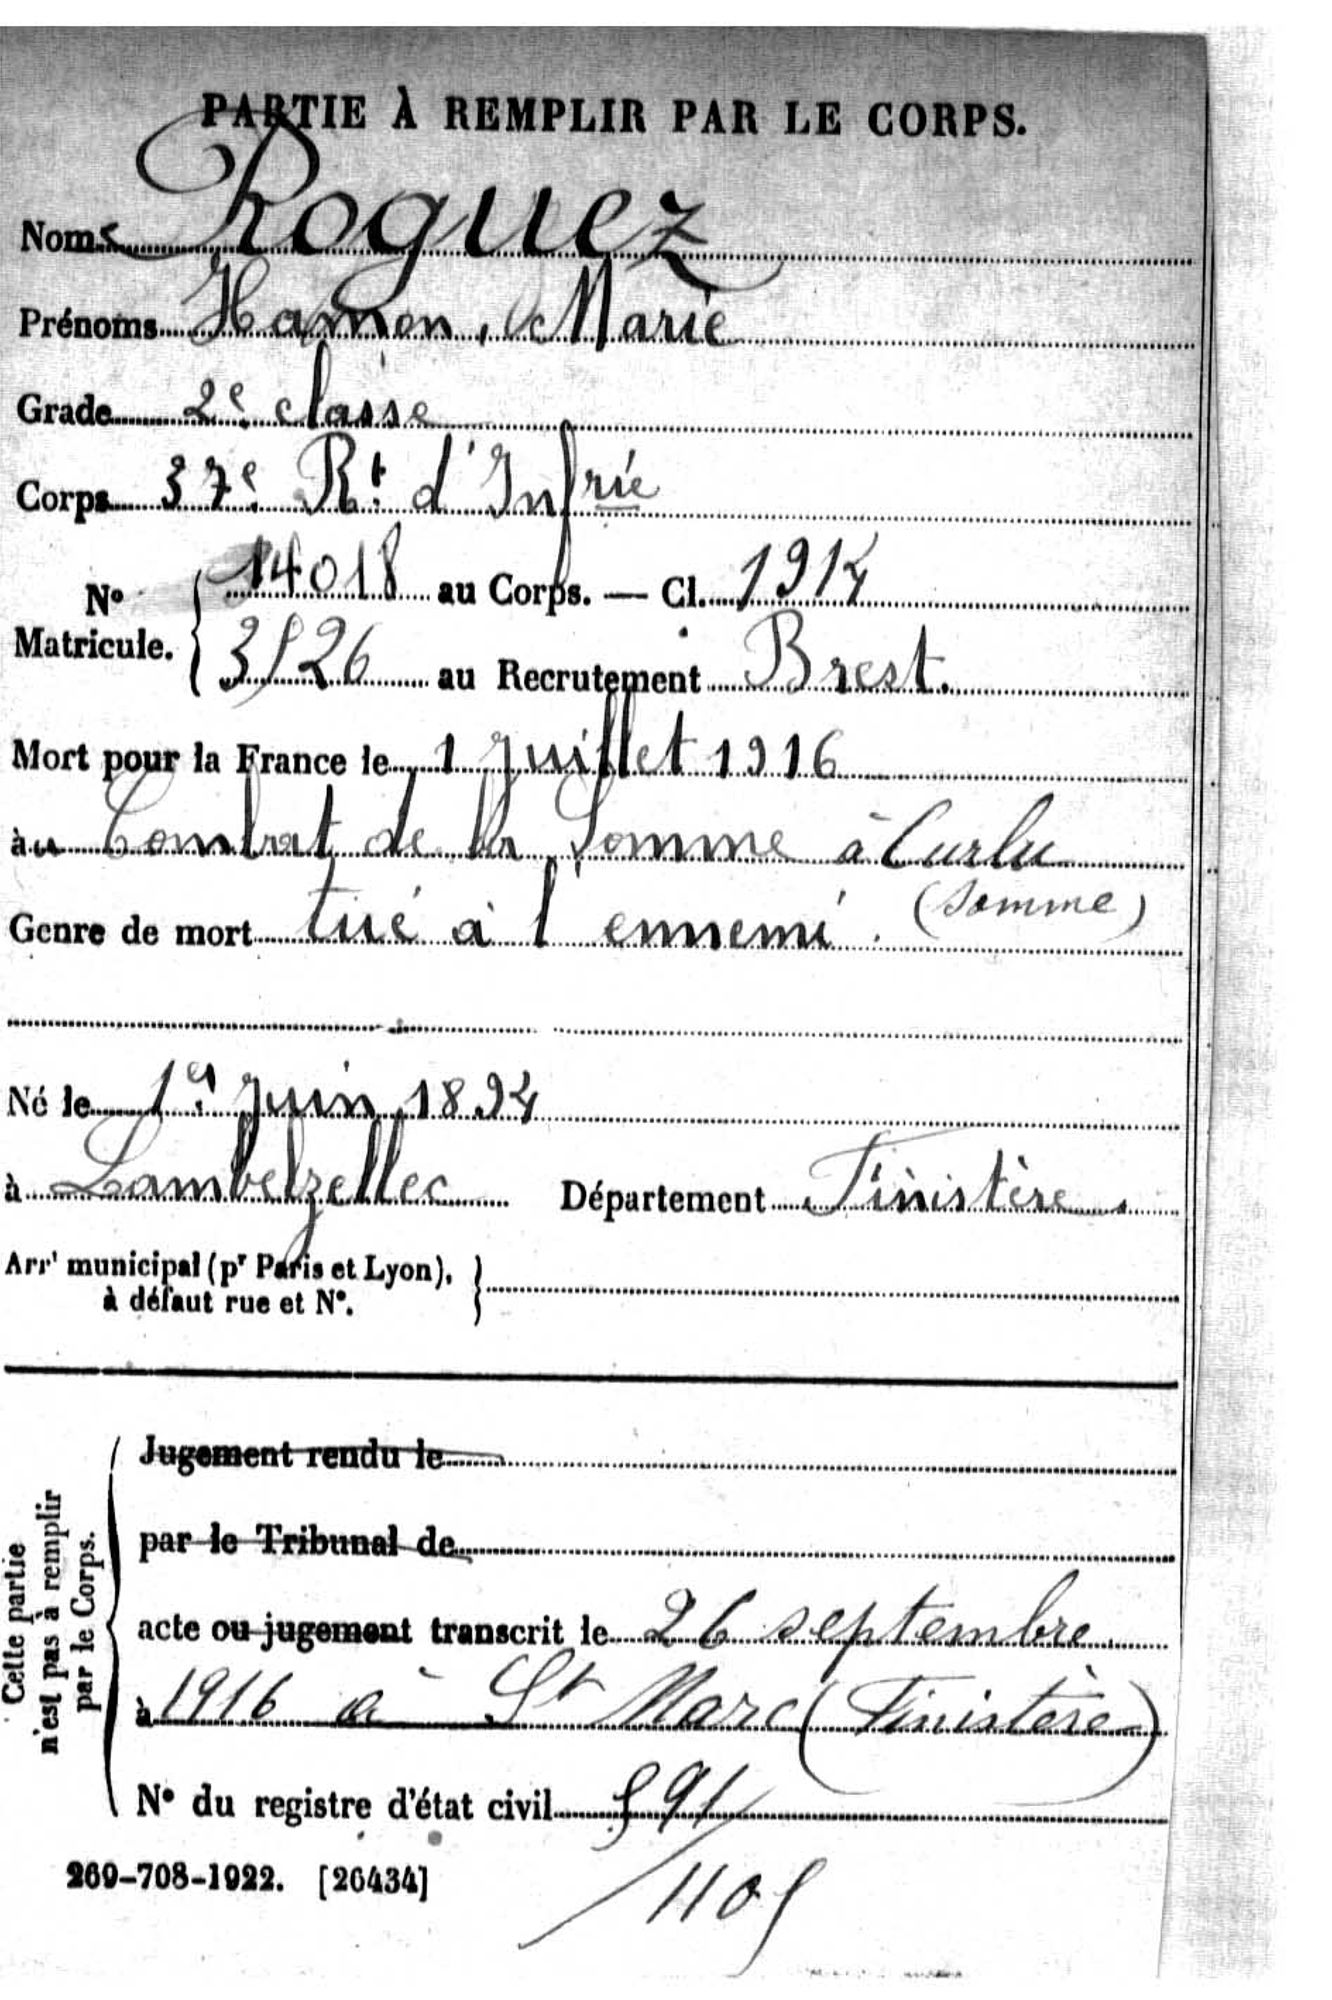 PARTIE À REMPLIR PAR LE CORPS.
Nom Roguez
Prénoms Hamon, Marie
Grade 2e classe
Corps 37e Rt d'Infrie
No Matricule. { 14018 au Corps. — Cl. 1914
3526 au Recrutement Brest.
Mort pour la France le 1 Juillet 1916
àu Combat de la Somme à Curlu
(Somme)
Genre de mort tué à l'ennemi.
Né le 1er Juin 1894
à Lambelzellec Département Finistère.
Arrt municipal (pr Paris et Lyon),
à défaut rue et No.
Cette partie
n'est pas à remplir
par le Corps.
Jugement rendu le
par le Tribunal de
acte ou jugement transcrit le 26 septembre
à 1916 à St Marc (Finistère)
No du registre d'état civil 591/
1105
269-708-1922. [26434]